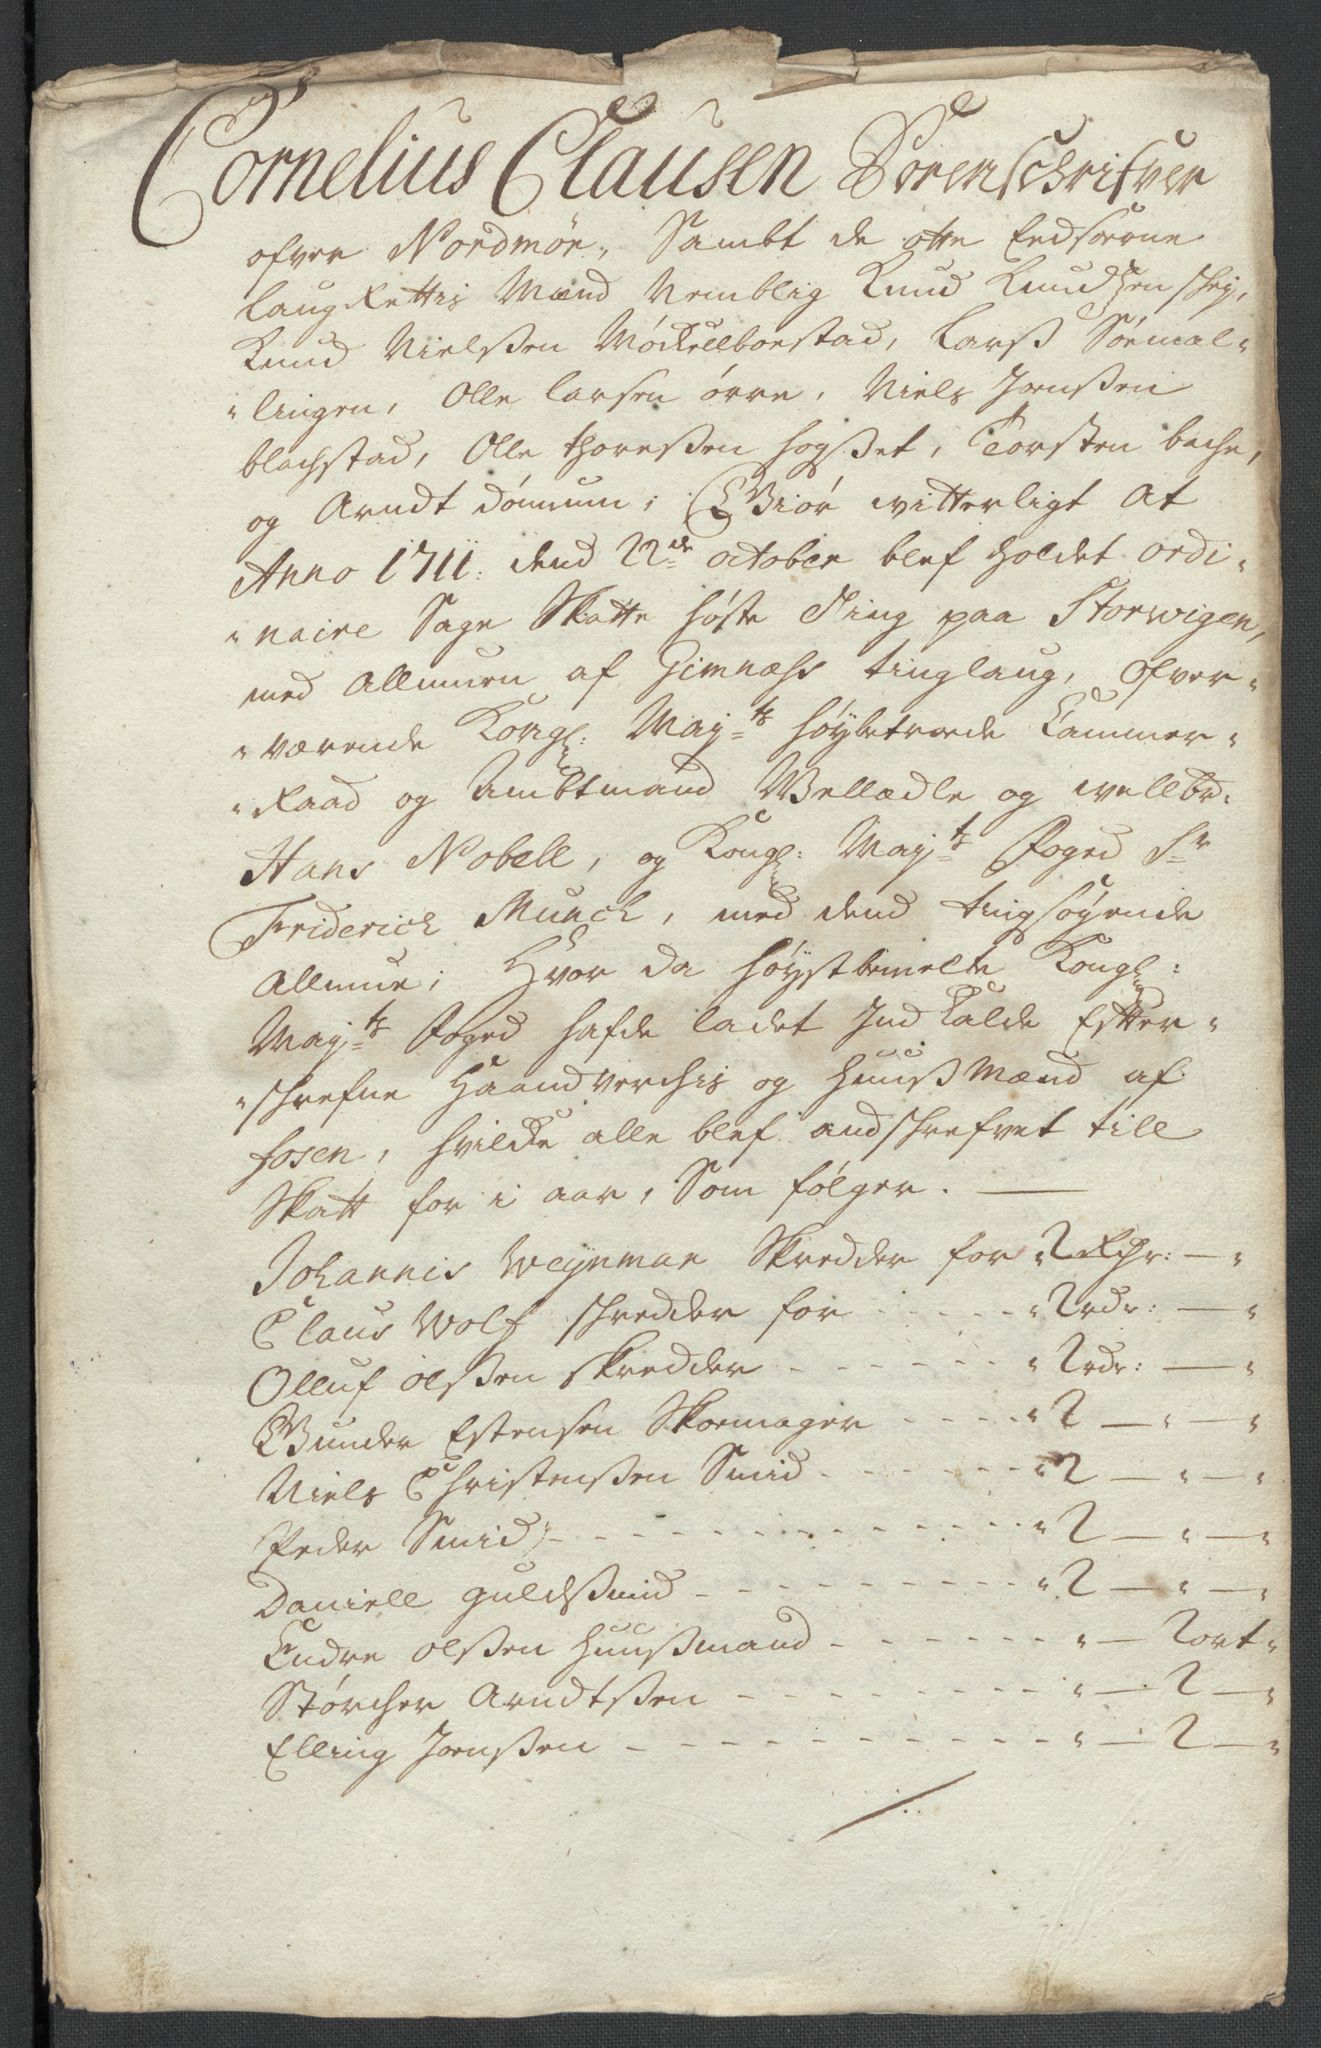 Cornelius Clausen Sorenschrifver
ofver Nordmør, Sambt de otte Eedsorne
LaugRettis Mænd Nemblig Knud Knudsen schej,
Knud Nielsßen Möckelboestad, Larß Sörmal-
-lingen, Olle Larsen örre, Niels Jonßen
blachstad, Olle Thoreßen hogßet, Torsten bache,
og Arndt dönnum; Giör witterligt At
Anno 1711: dend 22de october blef holdet ordi-
-naire Sage Skatte höste Ting paa Storwigen,
med Allmuen af Gimnæhs tinglaug, Ofver-
-værende Kongl: Maj=ts höybetroede Cammer-
-Raad og Ambtmand Wellædle og wellbr:
Hans Nobell, og Kongl: Maj=ts Foged Sr
Friderich Munch, med dend tingsøgende
Allmue; Hvor da høystbemelte Kongl:
Maj=ts Foged hafde ladet Jndkalde Efter-
-schrefne Haandverchis og Huußmænd af
fosen, hvilcke alle blef andschrefvet till
Skatt for i aar, Som følger. —
Johannis Weynman Skredder for - 2 Rdr: — -
Claus Wolf schredder for - - - - 2 rdr: — -
Olluf olßen skredder - - - - - - 2 rdr: — -
Gunder Estensen Skoemager - - - - 2 — - — -
Niels Christenßen Smid - - - - - - 2 — - — -
Peder Smid - - - - - - - - - - - 2 — - — -
Daniell guldsmid - - - - - - - - - 2 — - — -
Endre olßen Huußmand - - - - - - - — 2 ort -
Störcher Arndtßen - - - - - - - - - — 2 — -
Elling Jonßen - - - - - - - - - - - — 2 — -